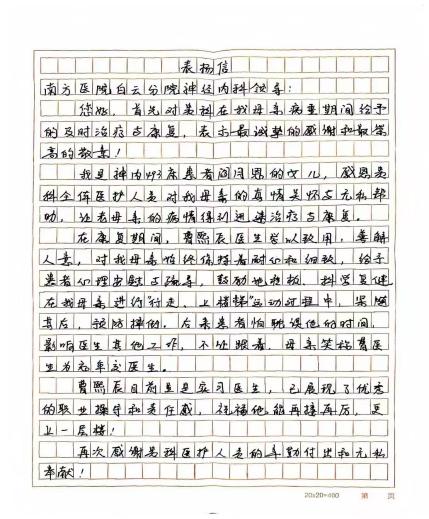 表扬信
南方医院白云分院神经内科领导：
您好，首先对贵科在我母亲病重期间给予
的及时治疗与康复，表示最诚挚的感谢和最崇
高的敬意！
我是神内493床患者闫同恩的女儿，感恩贵
科全体医护人员对我母亲的真情关怀与无私帮
助，让老母亲的病情得到迅速治疗与康复。
在康复期间，曹熙辰医生学以致用，善解
人意，对我母亲始终保持着耐心和细致，给予
患者心理安慰与疏导，鼓励她积极、科学复健，
在我母亲进行“行走、上楼梯”运动过程中，紧随
其后，预防摔倒。后来患者怕耽误他的时间，
影响医生其他工作，不让跟着，母亲笑称曹医
生为“老牵”式医生。
曹熙辰目前虽是实习医生，已展现了优秀
的职业操守和责任感，祝福他能再接再厉，更
上一层楼！
再次感谢贵科医护人员的辛勤付出和无私
奉献！
20×20=400 第 页